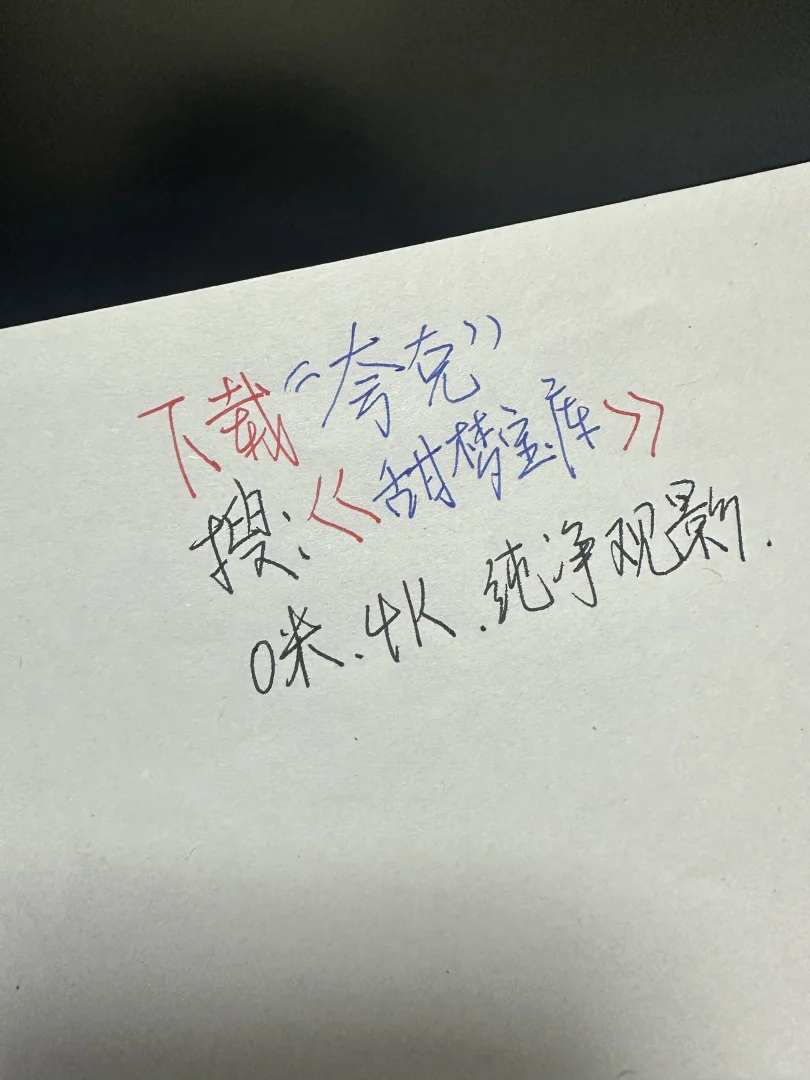 下载“夸克”
搜:《甜梦宝库》
0米.4K.纯净观影.